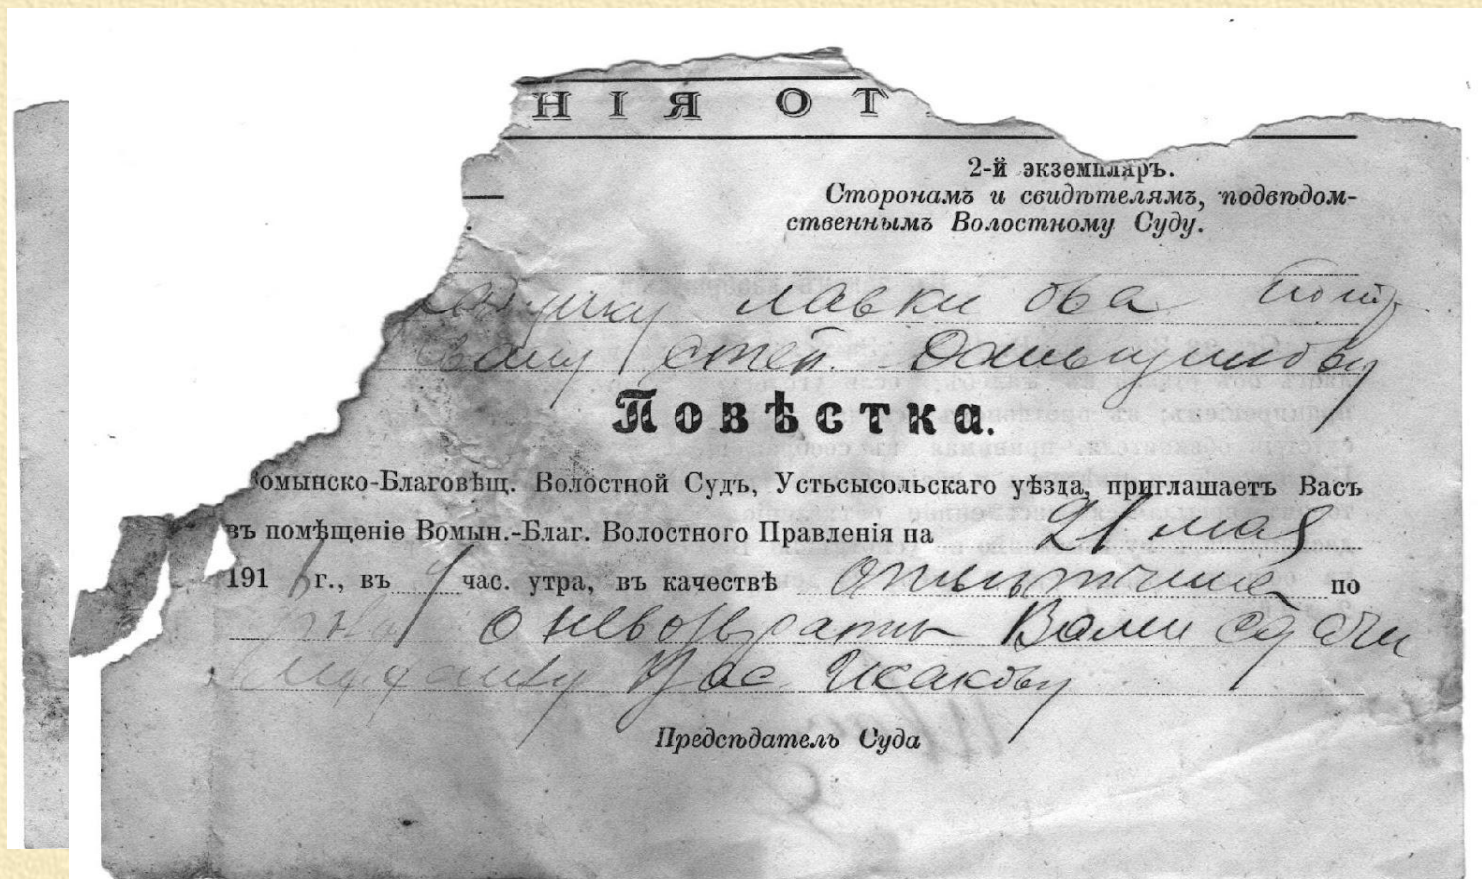 НІЯ ОТ
2-й экземпляръ.
Сторонамъ и свидѣтелямъ, подвѣдом-
ственнымъ Волостному Суду.
лавки об-ва
Степ.
Повѣстка.
Вомынско-Благовѣщ. Волостной Судъ, Устьсысольскаго уѣзда, приглашаетъ Васъ
въ помѣщеніе Вомын.-Благ. Волостного Правленія на 21 мая
191 г., въ 9 час. утра, въ качествѣ отвѣтчика по
о невозвратѣ Вами сдачи
Исакову
Предсѣдатель Суда